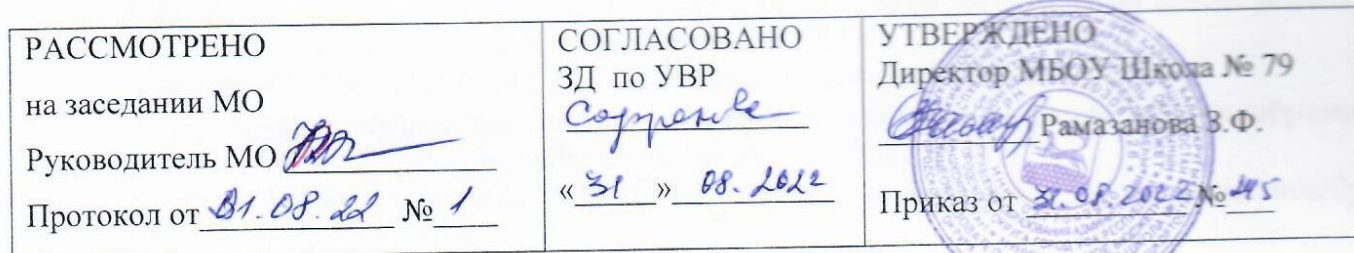 РАССМОТРЕНО
на заседании МО
Руководитель МО
Протокол от 31.08.22 № 1
СОГЛАСОВАНО
ЗД по УВР
«31» 08.2022
УТВЕРЖДЕНО
Директор МБОУ Школа № 79
Рамазанова З.Ф.
Приказ от 31.08.2022 №